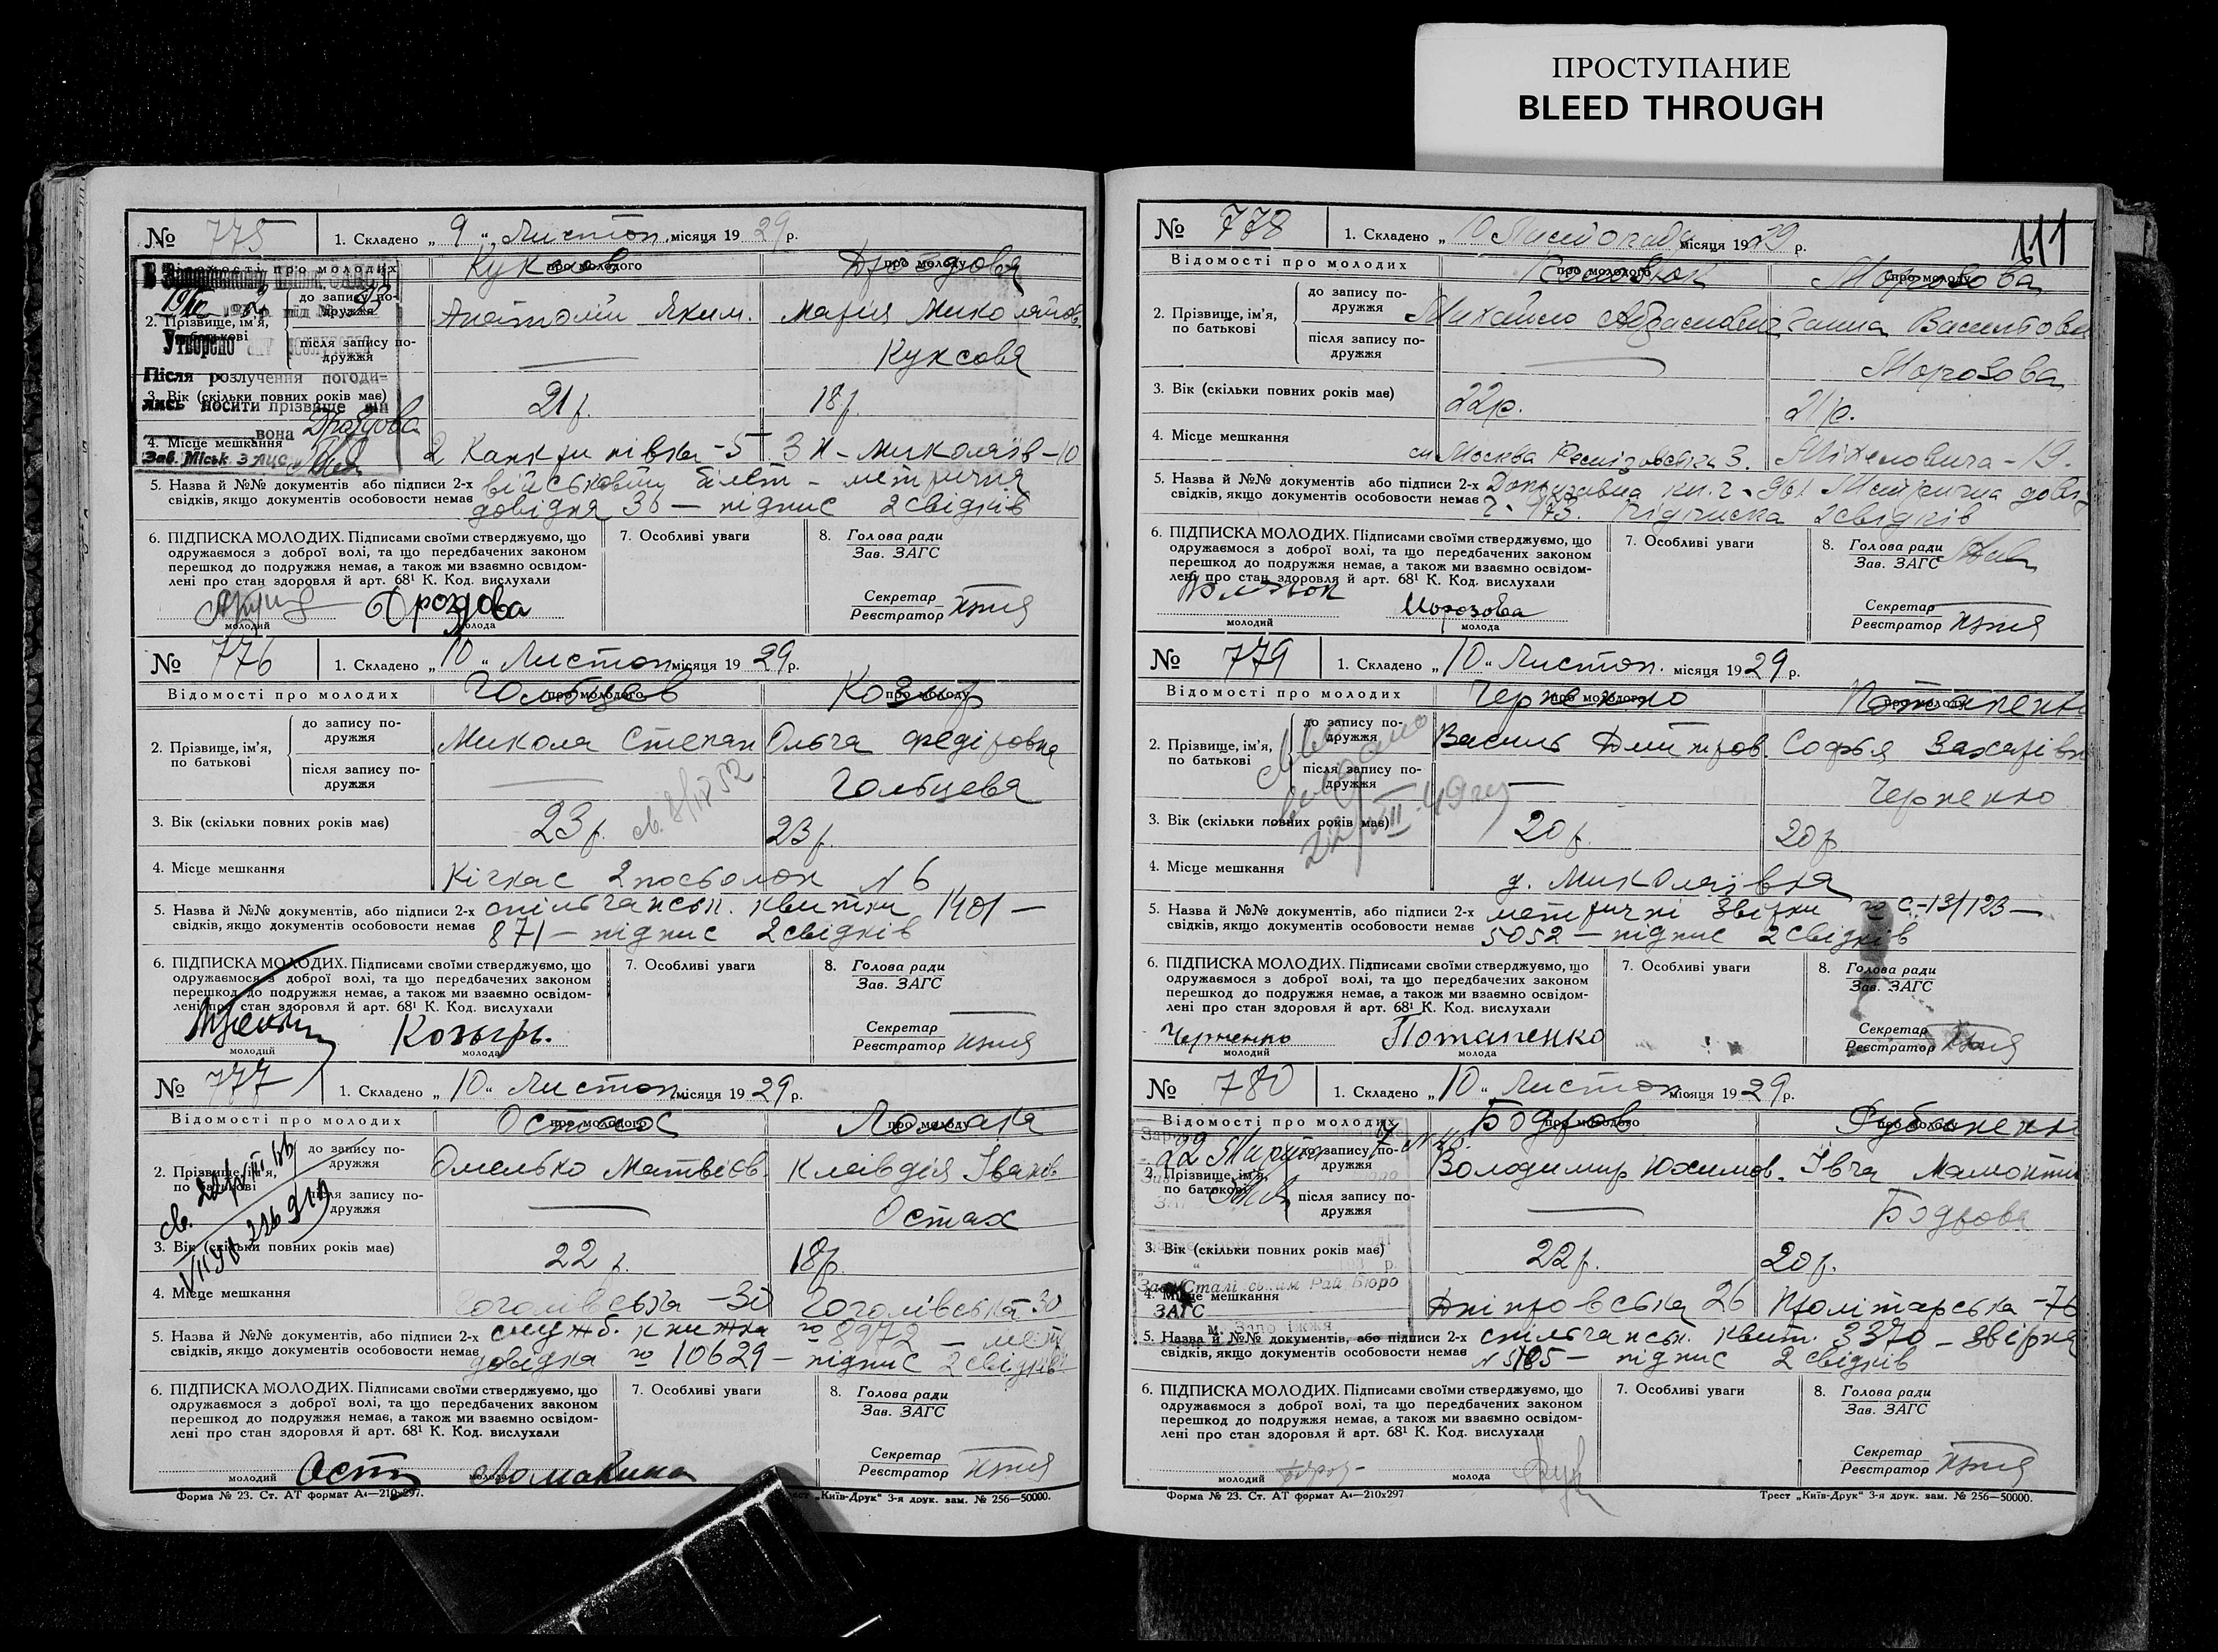 ПРОСТУПАНИЕ
BLEED THROUGH
№ 775 1. Складено „ 9 “ Листоп. місяця 19 29 р.
Відомості про молодих про молодого про молоду
Куксов Дроздова
2. Прізвище, ім’я, по батькові
до запису подружжя Анатолій Яким. Марія Миколаїов.
після запису подружжя — Куксова
Утворено
Після розлучення погоди-
лись носити прізвище він
вона Дроздова
Зав. Міськ ЗАГС
3. Вік (скільки повних років має) 21 р. 18 р.
4. Місце мешкання
5. Назва й №№ документів або підписи 2-х військовий білет - метрична
свідків, якщо документів особовости немає довідка 30 — підпис 2 свідків
6. ПІДПИСКА МОЛОДИХ. Підписами своїми стверджуємо, що
одружаємося з доброї волі, та що передбачених законом
перешкод до подружжя немає, а також ми взаємно освідом-
лені про стан здоровля й арт. 68¹ К. Код. вислухали
Дроздова
молодий молода
7. Особливі уваги
8. Голова ради
Зав. ЗАГС
Секретар
Реєстратор
№ 776 1. Складено „ 10 “ Листоп. місяця 19 29 р.
Відомості про молодих про молодого про молоду
Гольбцев Козир
2. Прізвище, ім’я, по батькові
до запису подружжя Микола Степан Ольга Федіровна
після запису подружжя — Гольбцева
3. Вік (скільки повних років має) 23 р. 23 р.
4. Місце мешкання Кічкас 2 посьолок N 6
5. Назва й №№ документів, або підписи 2-х спільчанськ. квитки 1401 —
свідків, якщо документів особовости немає 871 — підпис 2 свідків
6. ПІДПИСКА МОЛОДИХ. Підписами своїми стверджуємо, що
одружаємося з доброї волі, та що передбачених законом
перешкод до подружжя немає, а також ми взаємно освідом-
лені про стан здоровля й арт. 68¹ К. Код. вислухали
Козырь.
молодий молода
7. Особливі уваги
8. Голова ради
Зав. ЗАГС
Секретар
Реєстратор
№ 777 1. Складено „ 10 “ Листоп. місяця 19 29 р.
Відомості про молодих про молодого про молоду
Остах Ломака
2. Прізвище, ім’я, по батькові
до запису подружжя Омелько Матвіов. Клавдія Іванів
після запису подружжя — Остах
3. Вік (скільки повних років має) 22 р. 18 р.
4. Місце мешкання Гоголівська - 30 Гоголівська - 30
5. Назва й №№ документів, або підписи 2-х служб. книжка № 8972 — мет
свідків, якщо документів особовости немає довідка № 10629 — підпис 2 свідків
6. ПІДПИСКА МОЛОДИХ. Підписами своїми стверджуємо, що
одружаємося з доброї волі, та що передбачених законом
перешкод до подружжя немає, а також ми взаємно освідом-
лені про стан здоровля й арт. 68¹ К. Код. вислухали
Ломакина
молодий молода
7. Особливі уваги
8. Голова ради
Зав. ЗАГС
Секретар
Реєстратор
Форма № 23. Ст. АТ формат А₄—210х297.
Трест „Київ-Друк“ 3-я друк. зам. № 256—50000.
111
№ 778 1. Складено „ 10 Листопада місяця 1929 р.
Відомості про молодих про молодого про молоду
Морозова
2. Прізвище, ім’я, по батькові
до запису подружжя Михайло Ганна Васильовн
після запису подружжя — Морозова
3. Вік (скільки повних років має) 22 р. 21 р.
4. Місце мешкання Москва
5. Назва й №№ документів або підписи 2-х Допризовна кн. ч - 961 Метрична довід
свідків, якщо документів особовости немає ч - 973. Підписка 2 свідків
6. ПІДПИСКА МОЛОДИХ. Підписами своїми стверджуємо, що
одружаємося з доброї волі, та що передбачених законом
перешкод до подружжя немає, а також ми взаємно освідом-
лені про стан здоровля й арт. 68¹ К. Код. вислухали
Морозова
молодий молода
7. Особливі уваги
8. Голова ради
Зав. ЗАГС
Секретар
Реєстратор
№ 779 1. Складено „ 10 “ Листоп. місяця 19 29 р.
Відомості про молодих про молодого про молоду
Черненко Потапенко
2. Прізвище, ім’я, по батькові
до запису подружжя Василь Дмитров. Софья Захарівн
після запису подружжя — Черненко
3. Вік (скільки повних років має) 20 р. 20 р.
4. Місце мешкання д. Миколаївка
5. Назва й №№ документів, або підписи 2-х метричні звірки № с.-13/123 —
свідків, якщо документів особовости немає 5052 — підпис 2 свідків
6. ПІДПИСКА МОЛОДИХ. Підписами своїми стверджуємо, що
одружаємося з доброї волі, та що передбачених законом
перешкод до подружжя немає, а також ми взаємно освідом-
лені про стан здоровля й арт. 68¹ К. Код. вислухали
Черненко Потапенко
молодий молода
7. Особливі уваги
8. Голова ради
Зав. ЗАГС
Секретар
Реєстратор
№ 780 1. Складено „ 10 “ Листоп. місяця 19 29 р.
Відомості про молодих про молодого про молоду
Бодров
2. Прізвище, ім’я, по батькові
до запису подружжя Володимир Юхимов.
після запису подружжя — Бодрова
3. Вік (скільки повних років має) 22 р. 20 р.
4. Місце мешкання Дніпровська 26 Пролітарська - 76
5. Назва й №№ документів, або підписи 2-х спільчанськ. квит. 3370 — звірка
свідків, якщо документів особовости немає — підпис 2 свідків
6. ПІДПИСКА МОЛОДИХ. Підписами своїми стверджуємо, що
одружаємося з доброї волі, та що передбачених законом
перешкод до подружжя немає, а також ми взаємно освідом-
лені про стан здоровля й арт. 68¹ К. Код. вислухали
молодий молода
7. Особливі уваги
8. Голова ради
Зав. ЗАГС
Секретар
Реєстратор
Форма № 23. Ст. АТ формат А₄—210х297
Трест „Київ-Друк“ 3-я друк. зам. № 256—50000.